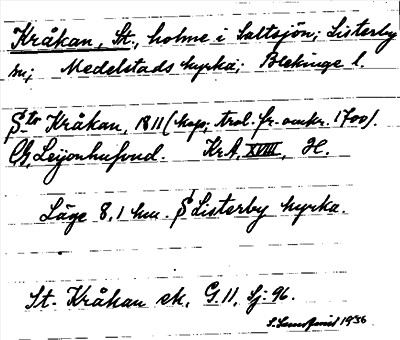 Kråkan, St., holme i Saltsjön; Listerby
sn; Medelstads kyrka; Blekinge l.
Str Kråkan, 1811 (kop; trol. fr. omkr. 1700).
G. Leijonhufvud. KrA, XVIII, H.
Läge 8,1 km. S Listerby kyrka.
St. Kråkan ek. G. 11, Sj. 96.
1956